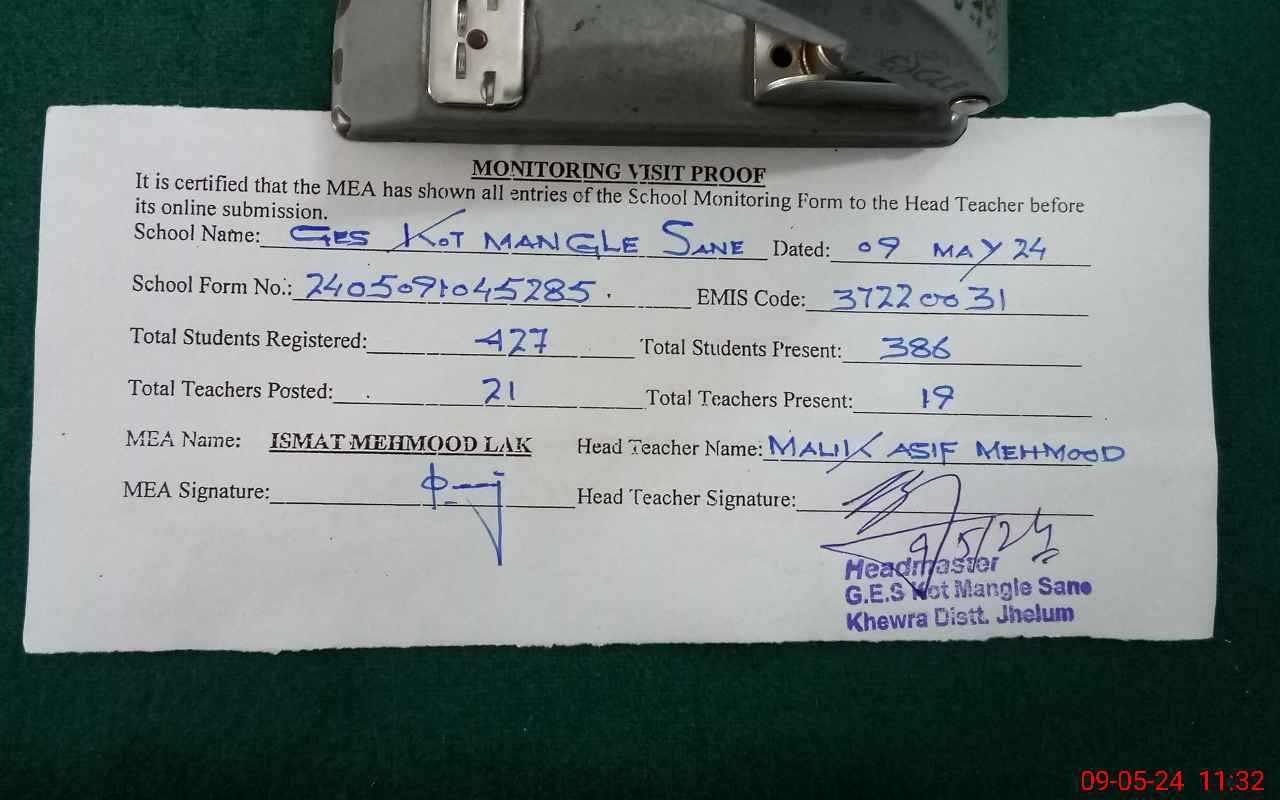 EAGLE
MONITORING VISIT PROOF
It is certified that the MEA has shown all entries of the School Monitoring Form to the Head Teacher before
its online submission.
School Name: GES KOT MANGLE SANE Dated: 09 MAY 24
School Form No.: 2405091045285 . EMIS Code: 37220031
Total Students Registered: 427 Total Students Present: 386
Total Teachers Posted: 21 Total Teachers Present: 19
MEA Name: ISMAT MEHMOOD LAK Head Teacher Name: MALIK ASIF MEHMOOD
MEA Signature: Head Teacher Signature:
9/5/24
Headmaster
G.E.S Kot Mangle Sane
Khewra Distt. Jhelum
09-05-24 11:32